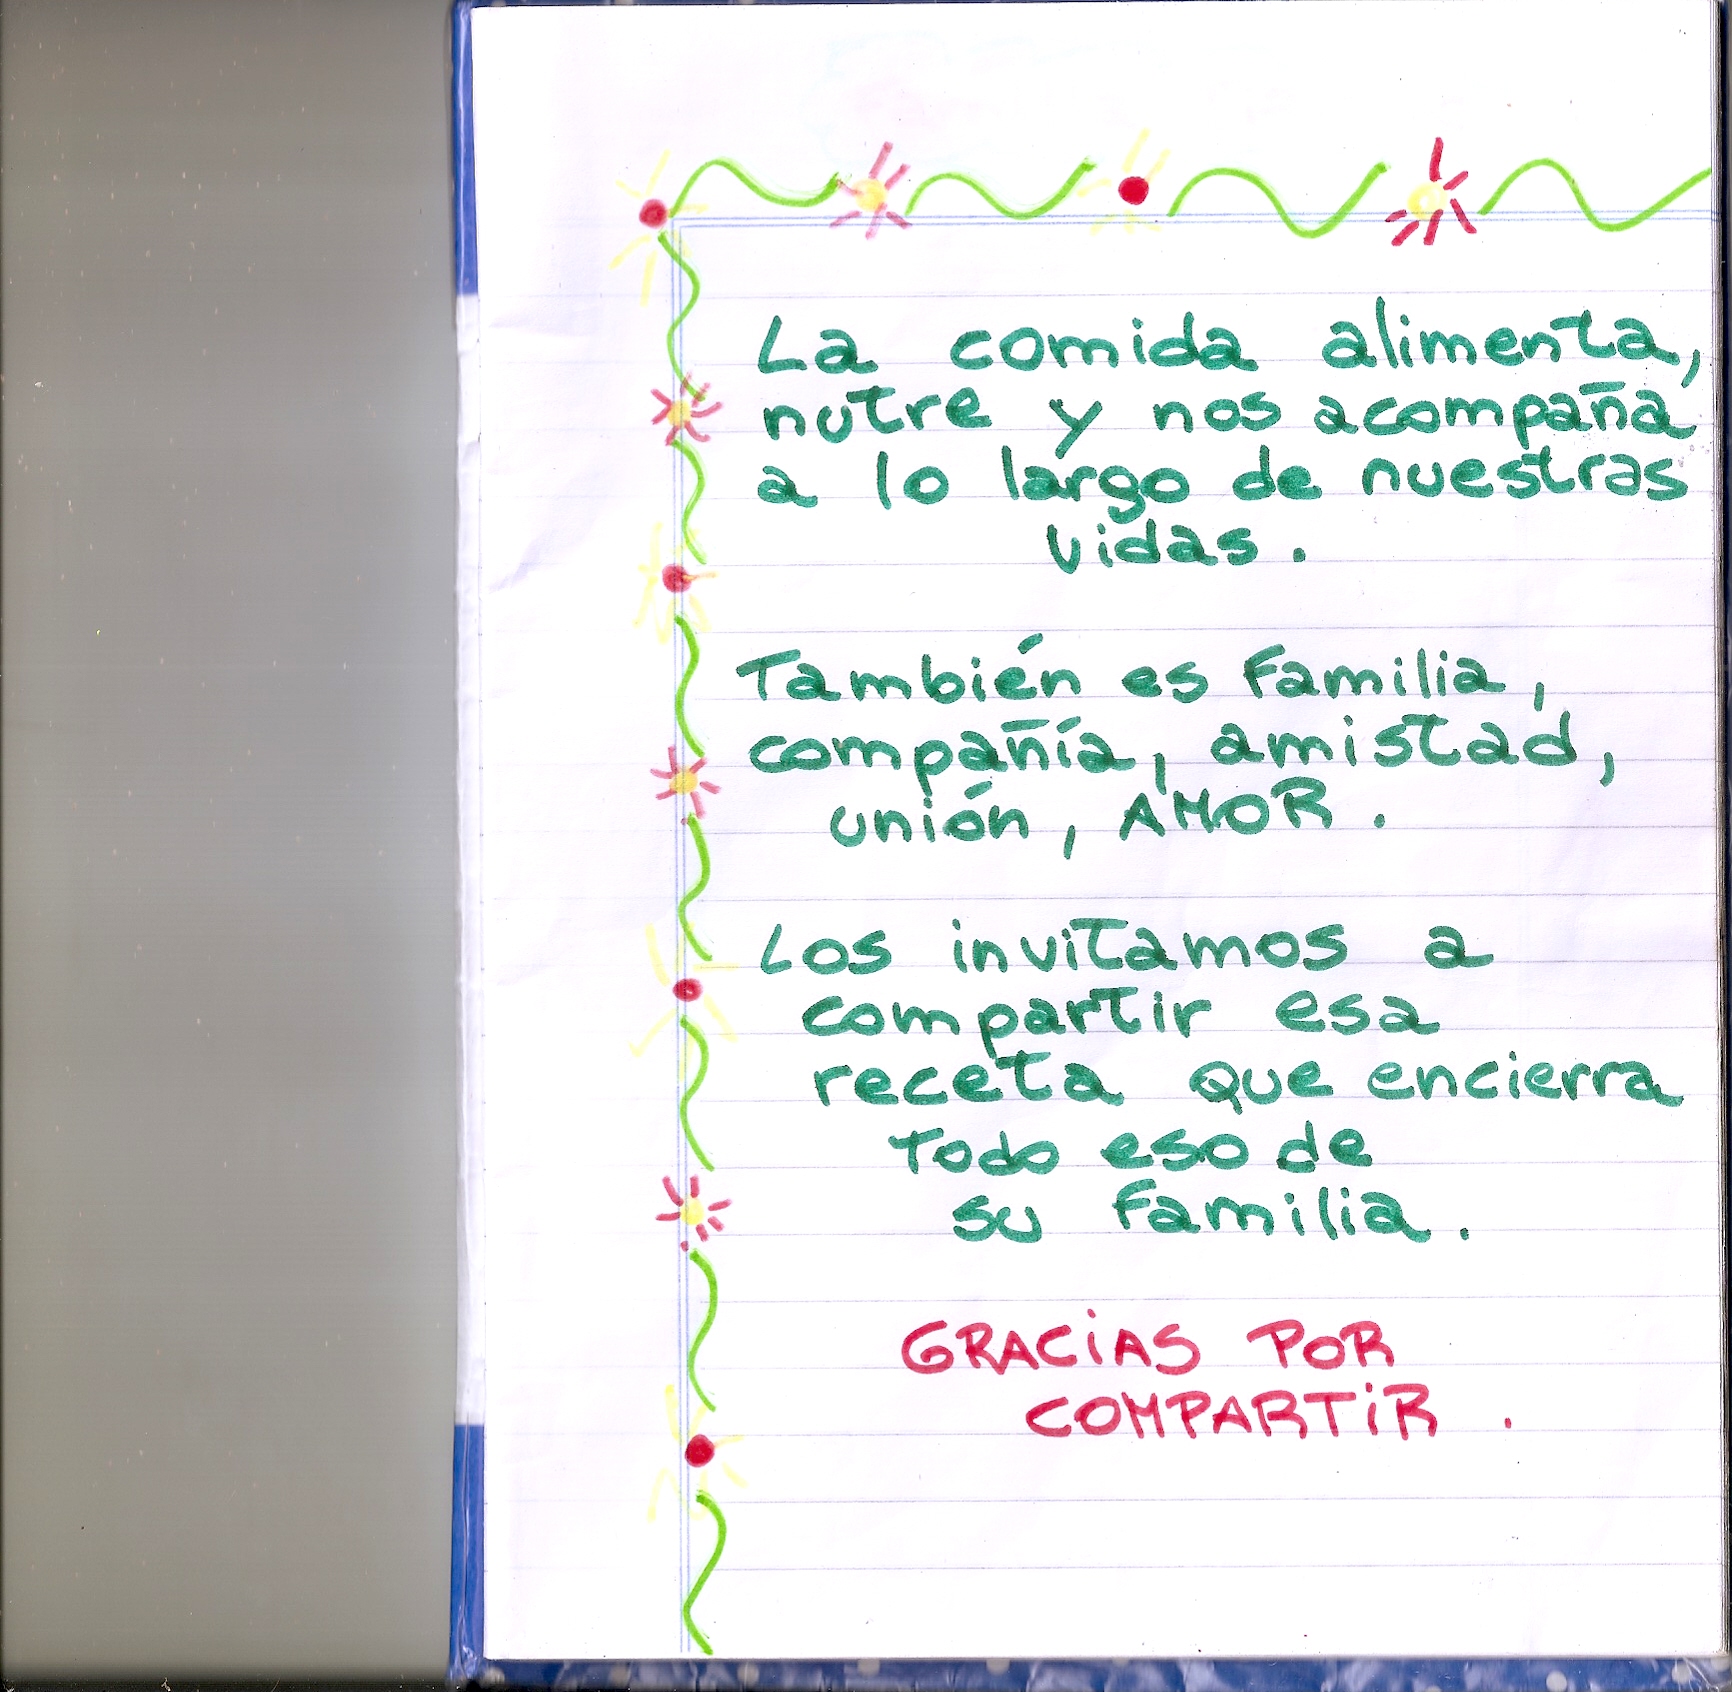 La comida alimenta,
nutre y nos acompaña
a lo largo de nuestras
vidas.
También es familia,
compañía, amistad,
unión, AMOR.
Los invitamos a
compartir esa
receta que encierra
todo eso de
su familia.
GRACiAS POR
COMPARTiR.